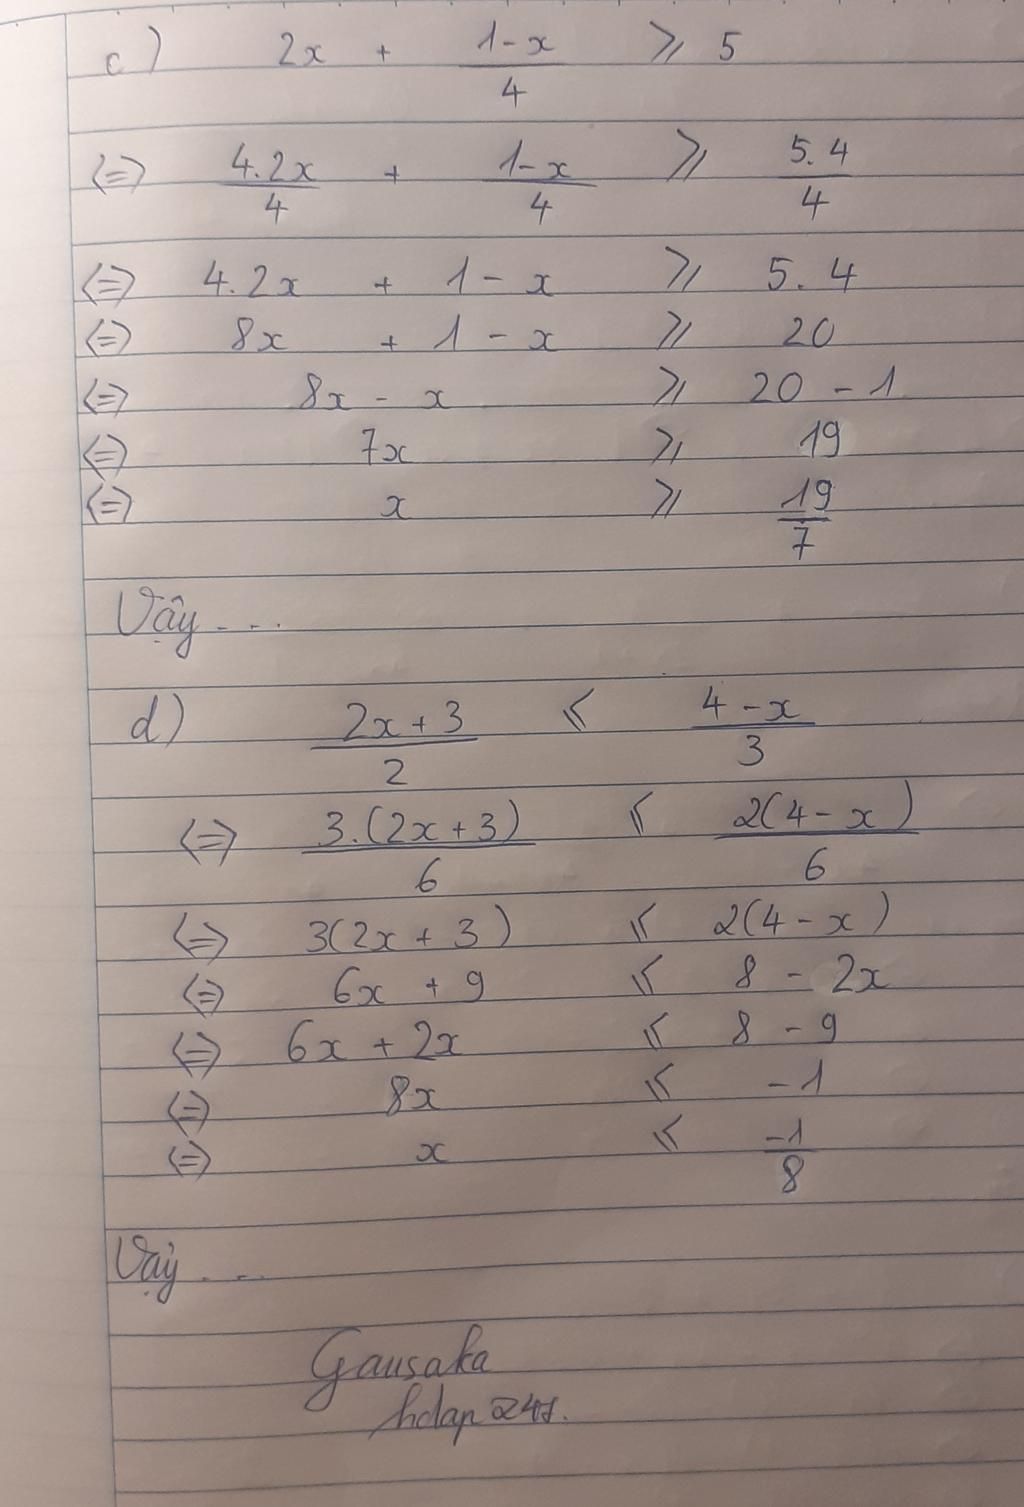 c) 2x + (1-x)/4 ⩾ 5
⇔ (4.2x)/4 + (1-x)/4 ⩾ (5.4)/4
⇔ 4.2x + 1 - x ⩾ 5.4
⇔ 8x + 1 - x ⩾ 20
⇔ 8x - x ⩾ 20 - 1
⇔ 7x ⩾ 19
⇔ x ⩾ 19/7
Vậy ...
d) (2x+3)/2 ⩽ (4-x)/3
⇔ (3.(2x+3))/6 ⩽ (2(4-x))/6
⇔ 3(2x+3) ⩽ 2(4-x)
⇔ 6x + 9 ⩽ 8 - 2x
⇔ 6x + 2x ⩽ 8 - 9
⇔ 8x ⩽ -1
⇔ x ⩽ -1/8
Vậy ...
Gausaka